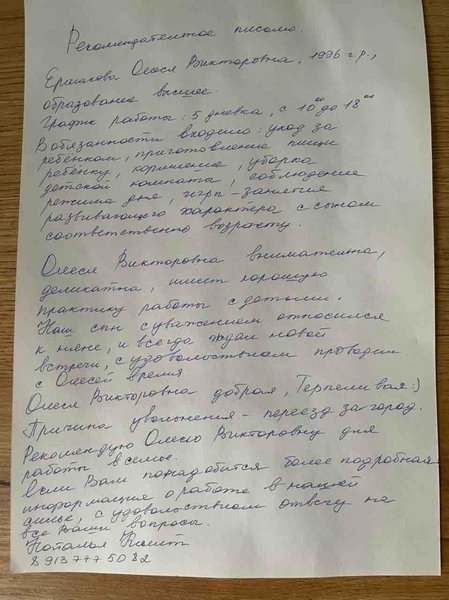 Рекомендательное письмо.
Ермакова Олеся Викторовна, 1996 г.р.,
образование высшее.
График работы: 5 дневка, с 10⁰⁰ до 18⁰⁰
В обязанности входило: уход за
ребёнком, приготовление пищи
ребёнку, кормление, уборка
детской комнаты, соблюдение
режима дня, игры-занятия
развивающего характера с сыном
соответственно возрасту.
Олеся Викторовна внимательна,
деликатна, имеет хорошую
практику работы с детьми.
Наш сын с уважением относился
к няне, и всегда ждал новой
встречи, с удовольствием проводил
с Олесей время
Олеся Викторовна добрая, терпеливая:)
Причина увольнения - переезд за город.
Рекомендую Олесю Викторовну для
работы в семье.
Если Вам понадобится более подробная
информация о работе в нашей
семье, с удовольствием отвечу на
все Ваши вопросы.
Наталья
8 913 777 50 82